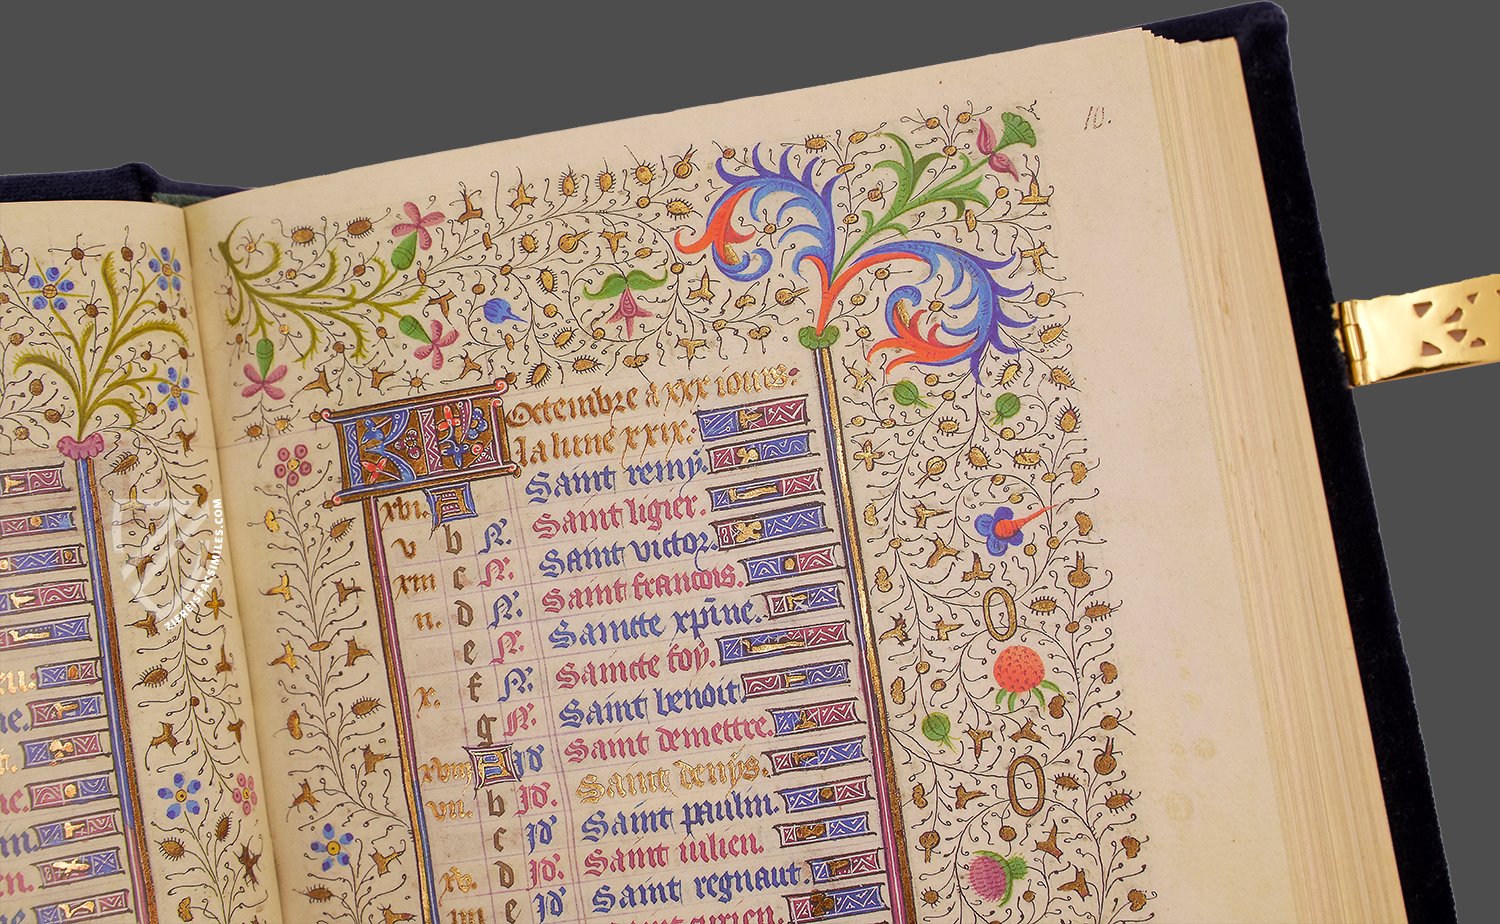 10.
KL Octembre a xxx iours.
La lune xxix.
xvi. A Saint remy.
v b N. Saint ligier.
xiii c N. Saint victor.
ii. d N. Saint francois.
e N. Saincte xp̄ine.
x. f N. Saincte foy.
g N. Saint benoit.
xviii A Id Saint demettre.
vii. b Id. Saint denys.
c Id Saint paulin.
xv. d Id. Saint iulien.
iiii e Id Saint regnaut.
ZIEREIS FACSIMILES.COM